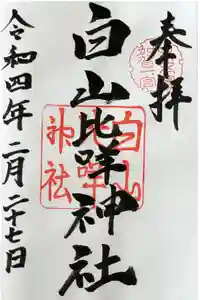 奉拝
白山比咩神社
令和四年二月二十七日
白山
比咩
神社